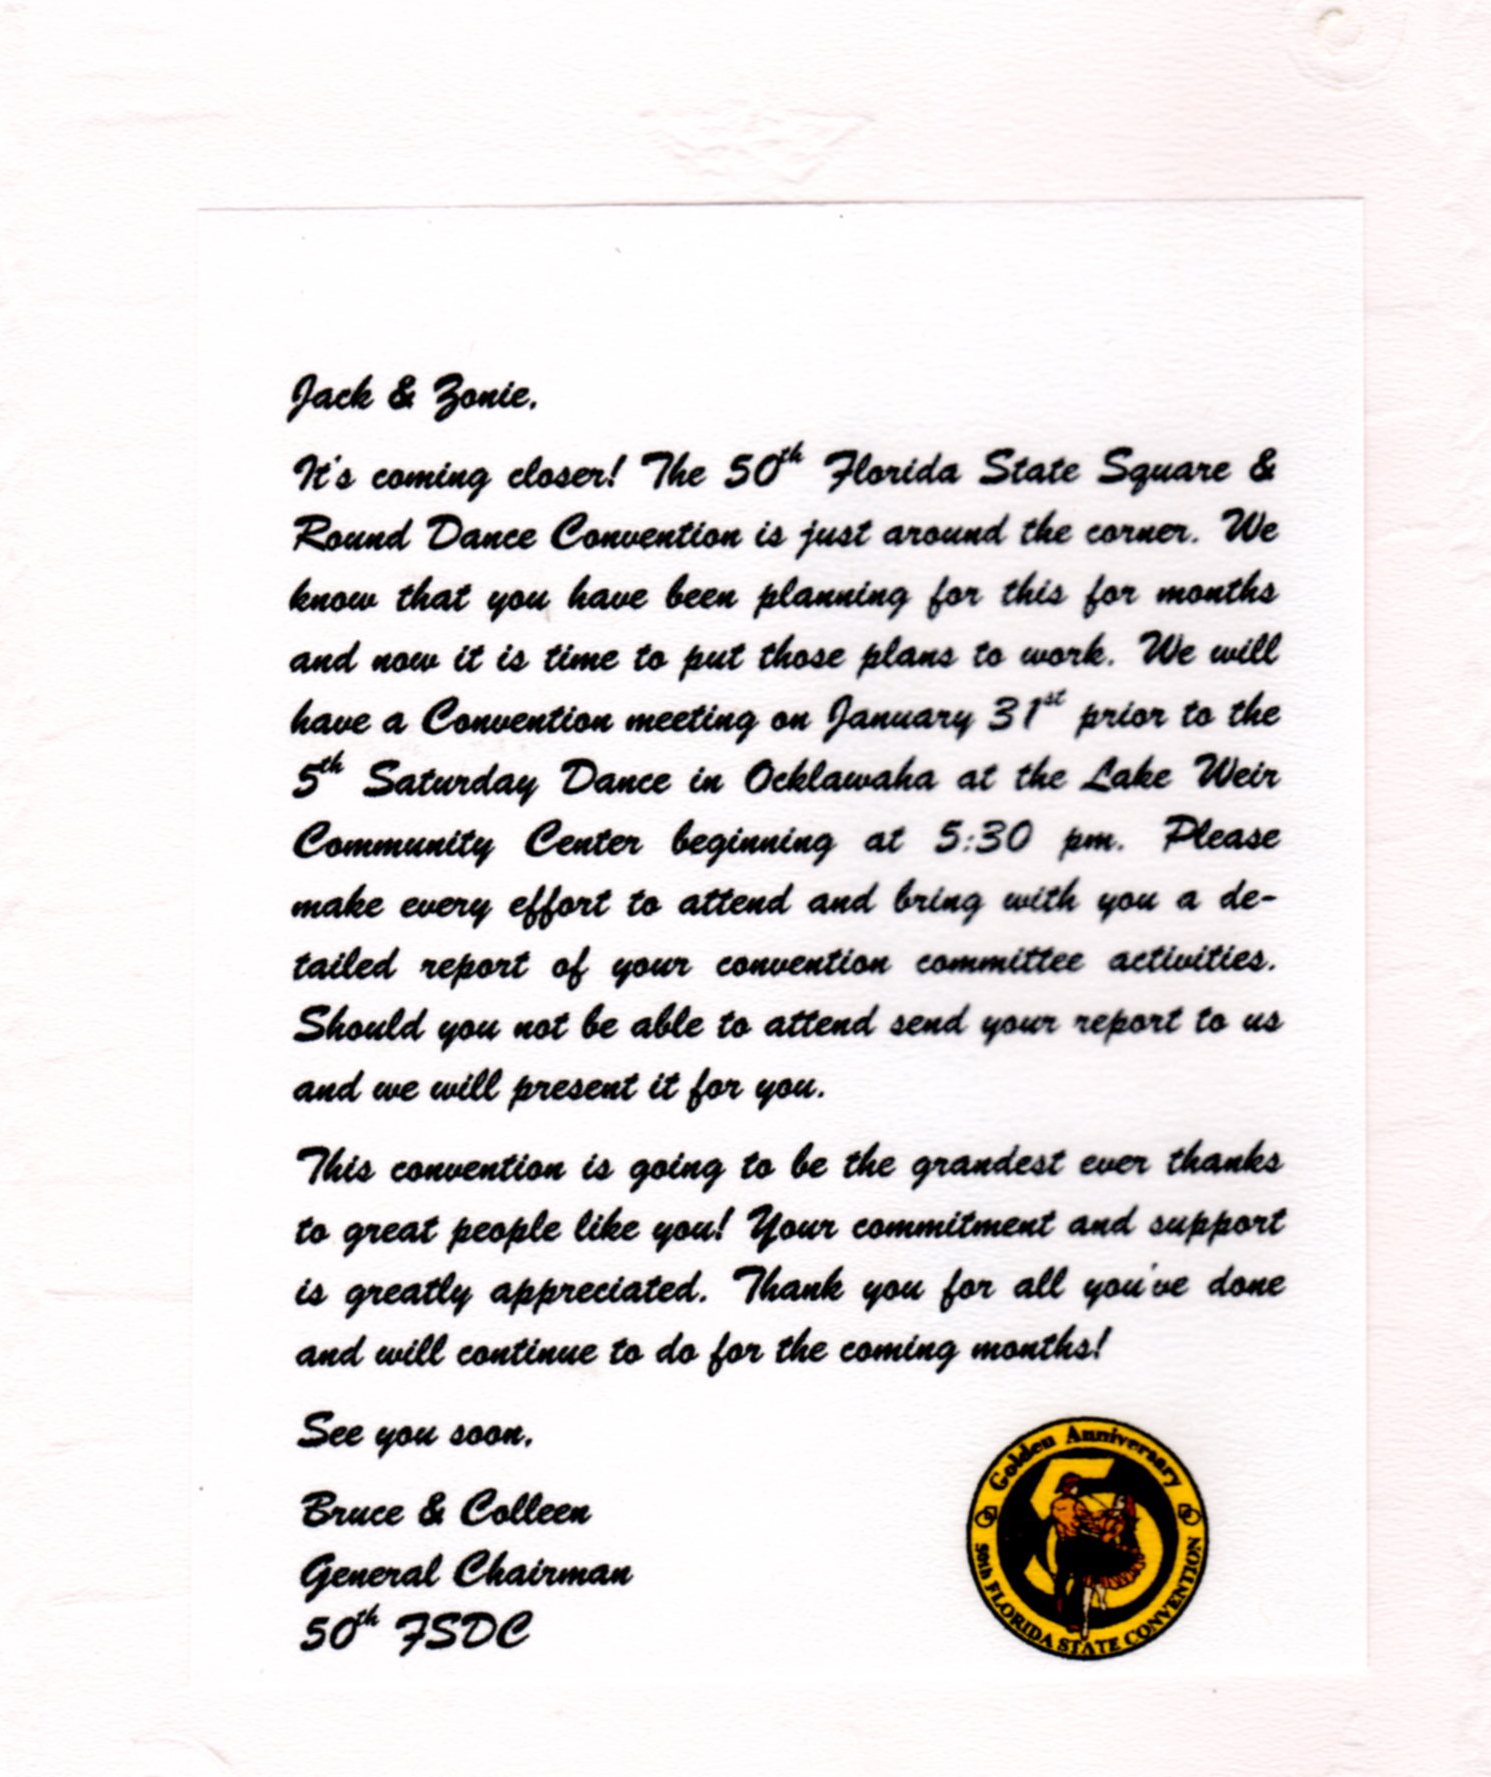 Jack & Zonie,
It's coming closer! The 50th Florida State Square &
Round Dance Convention is just around the corner. We
know that you have been planning for this for months
and now it is time to put those plans to work. We will
have a Convention meeting on January 31st prior to the
5th Saturday Dance in Ocklawaha at the Lake Weir
Community Center beginning at 5:30 pm. Please
make every effort to attend and bring with you a de-
tailed report of your convention committee activities.
Should you not be able to attend send your report to us
and we will present it for you.
This convention is going to be the grandest ever thanks
to great people like you! Your commitment and support
is greatly appreciated. Thank you for all you've done
and will continue to do for the coming months!
See you soon,
Bruce & Colleen
General Chairman
50th FSDC
Golden Anniversary
50
50th FLORIDA STATE CONVENTION